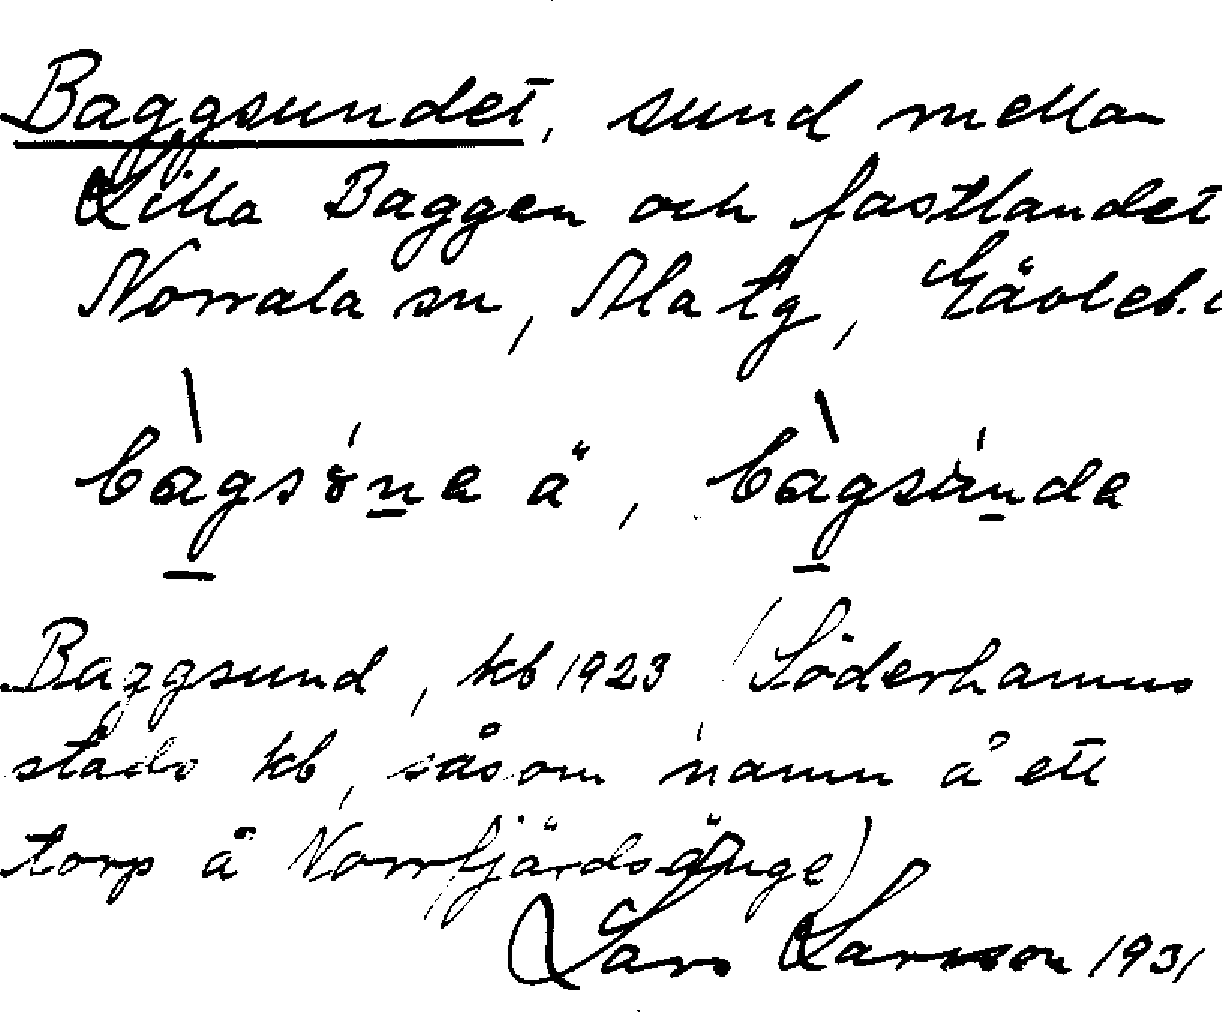 Baggsundet, sund mellan
Lilla Baggen och fastlandet
Norrala sn, Ala tg, Gävleb.
bàgsúna å, bàgsúnda
Baggsund, kb 1923 (Söderhamns
stads kb, såsom namn å ett
torp å Norrfjärdsänge)
Lars Larsson 1931